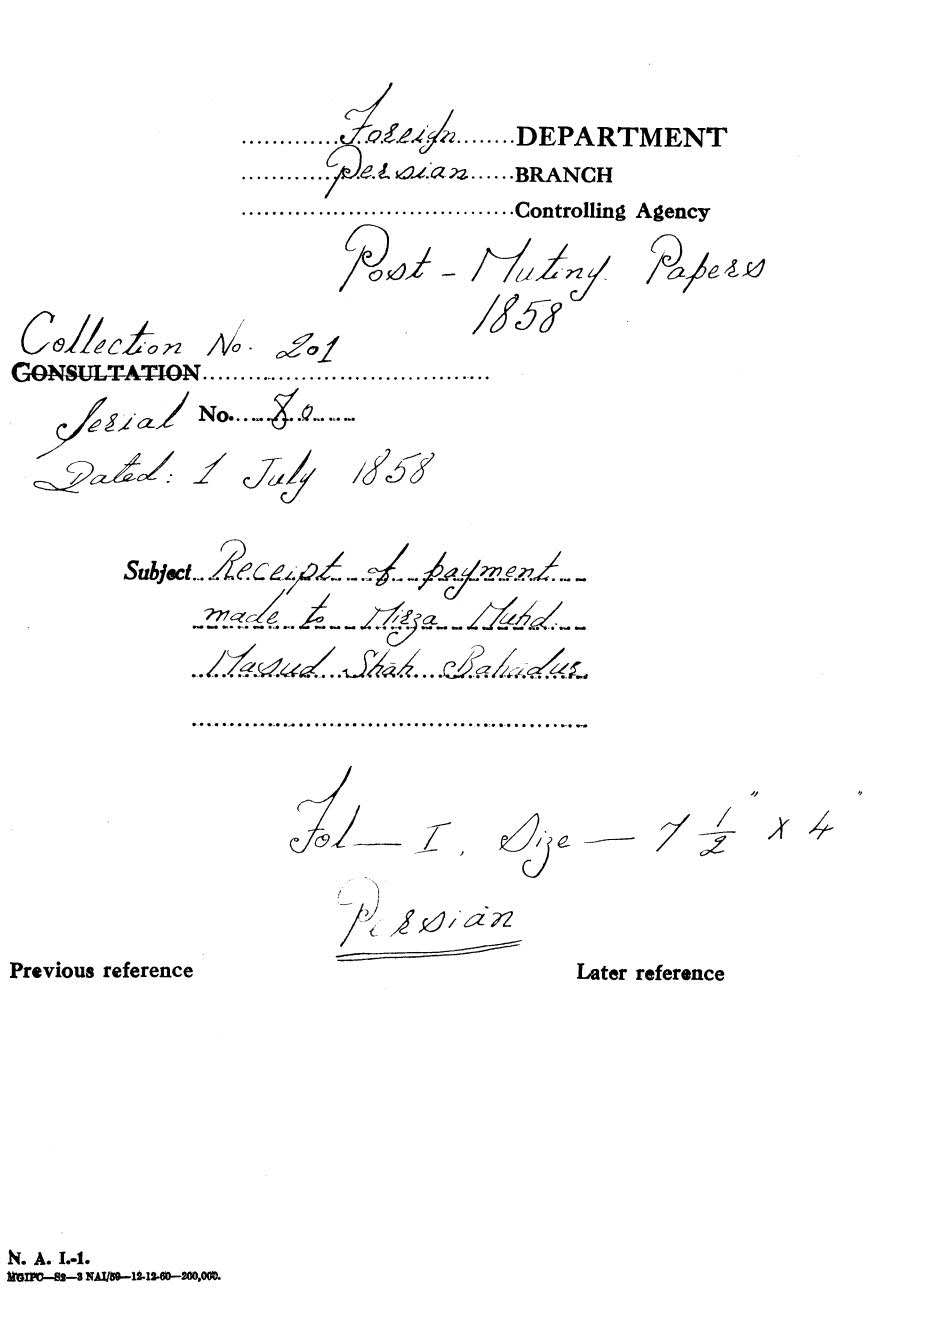 Foreign DEPARTMENT
Persian BRANCH
Controlling Agency
Post - Mutiny Papers
1858
Collection No. 201
CONSULTATION
Serial No. 80
Dated: 1 July 1858
Subject Receipt of payment
made to Mirza Muhd.
Masud Shah Bahadur
Fol — I, Size — 7 1/2" x 4"
Persian
Previous reference Later reference
N. A. I.-1.
MGIPC—S2—3 NAI/59—12-12-60—200,000.